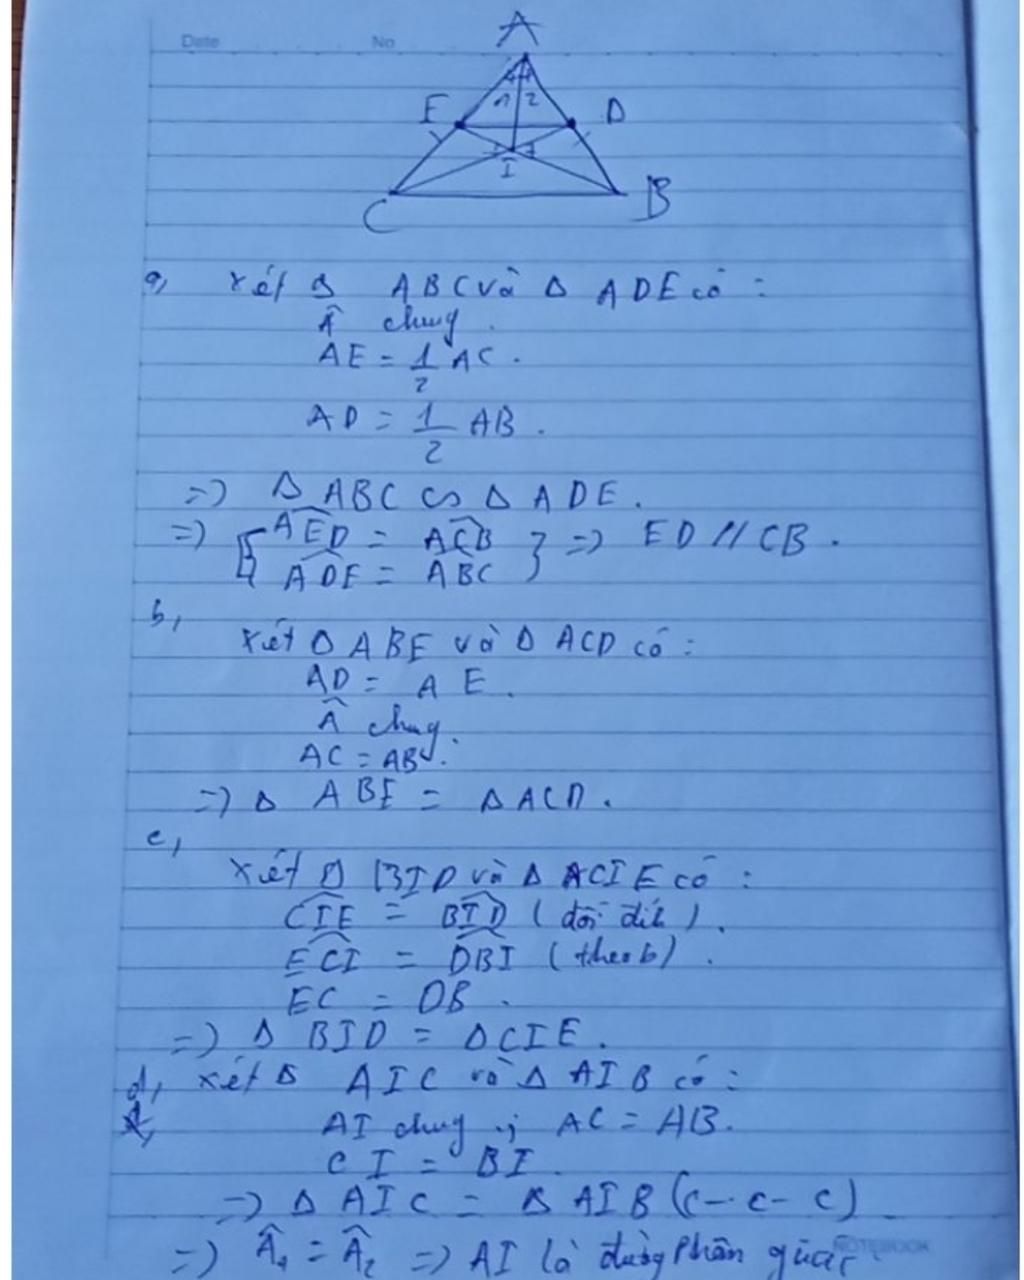 Date No
A
E 1 2 D
I
C B
a, Xét Δ ABC và Δ ADE có :
Â chung.
AE = 1/2 AC.
AD = 1/2 AB.
=> Δ ABC ∽ Δ ADE.
=> [ AED = ACB } => ED // CB.
ADE = ABC
b,
Xét Δ ABE và Δ ACD có :
AD = AE.
Â chung.
AC = AB.
=> Δ ABE = Δ ACD.
c,
Xét Δ BID và Δ ACIE có :
CIE = BID (đối đỉnh).
ECI = DBI (theo b).
EC = DB.
=> Δ BID = Δ CIE.
d, Xét Δ AIC và Δ AIB có :
AI chung ; AC = AB.
CI = BI.
=> Δ AIC = Δ AIB (c - c - c)
=> Â1 = Â2 => AI là đường phân giác
NOTEBOOK